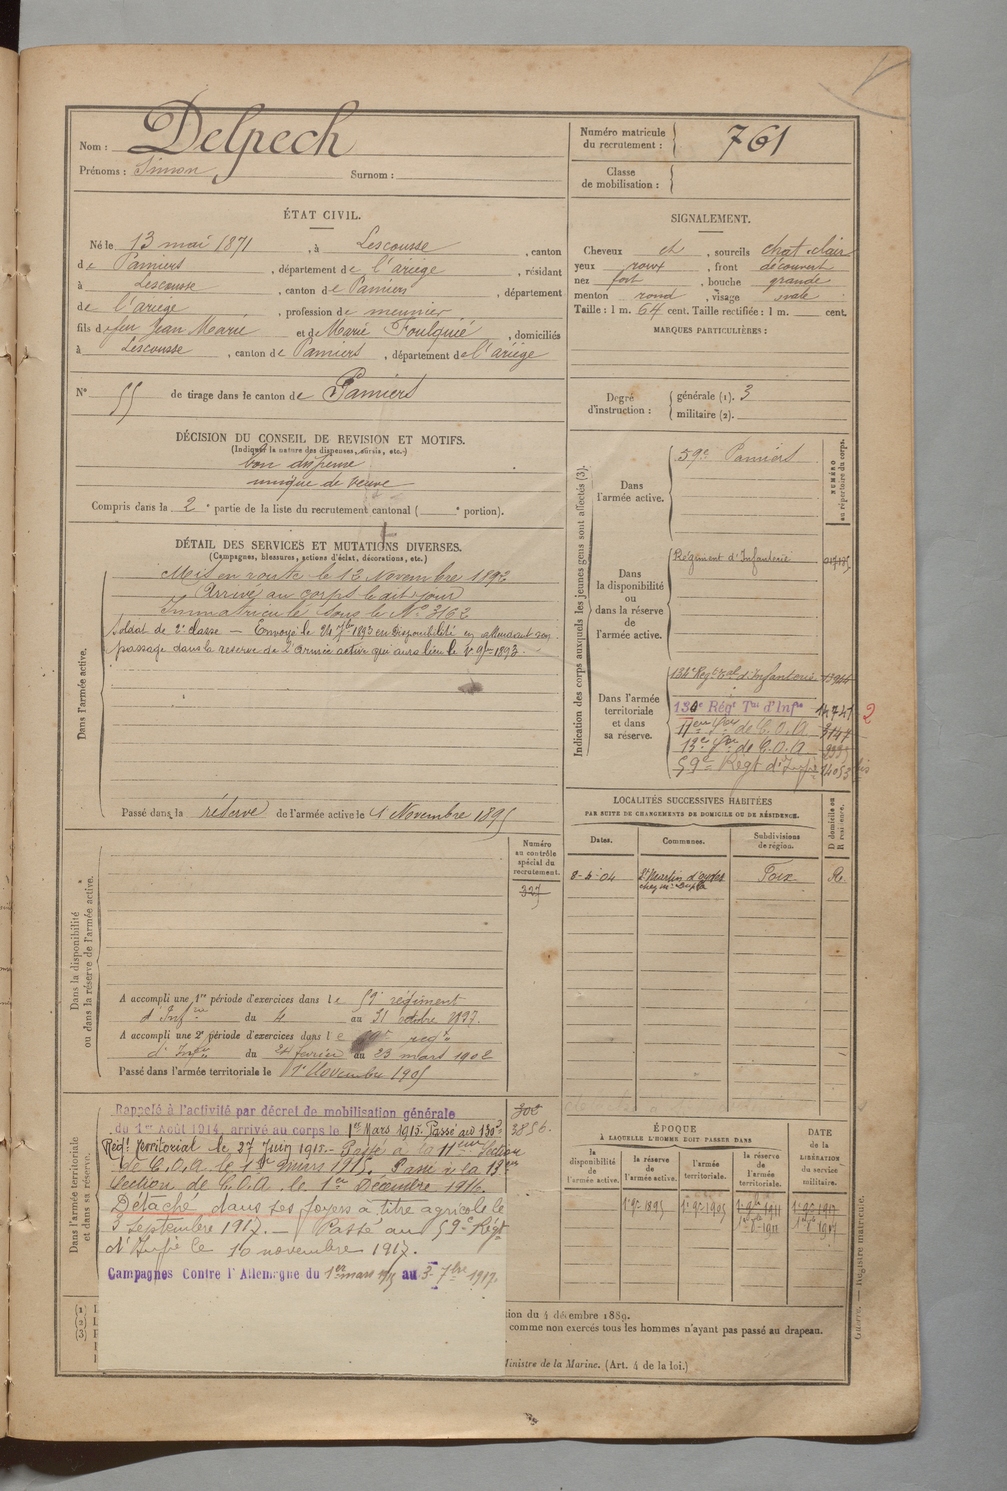 Nom : Delpech
Prénoms : Simon Surnom :
Numéro matricule
du recrutement : 761
Classe
de mobilisation :
ÉTAT CIVIL.
Né le 13 mai 1871, à Lescousse, canton
de Pamiers, département de l'ariège, résidant
à Lescousse, canton de Pamiers, département
de l'ariège, profession de meunier
fils de feu Jean Marie et de Marie Foulquié, domiciliés
à Lescousse, canton de Pamiers, département de l'ariège
N° 55 de tirage dans le canton de Pamiers
DÉCISION DU CONSEIL DE REVISION ET MOTIFS.
(Indiquer la nature des dispenses, sursis, etc.)
bon dispensé
unique de veuve
Compris dans la 2e partie de la liste du recrutement cantonal ( e portion).
DÉTAIL DES SERVICES ET MUTATIONS DIVERSES.
(Campagnes, blessures, actions d'éclat, décorations, etc.)
Dans l'armée active.
Mis en route le 12 Novembre 1892
Arrivé au corps le dit jour
Immatriculé sous le N° 3162
Soldat de 2e classe — Envoyé le 24 7bre 1893 en disponibilité en attendant son
passage dans la réserve de l'Armée active qui aura lieu le
Passé dans la réserve de l'armée active le 1 Novembre 1895
SIGNALEMENT.
Cheveux ch, sourcils chat clair
yeux roux, front découvert
nez fort, bouche grande
menton rond, visage ovale
Taille : 1 m. 64 cent. Taille rectifiée : 1 m. cent.
MARQUES PARTICULIÈRES :
Degré
d'instruction :
générale (1). 3
militaire (2).
Indication des corps auxquels les jeunes gens sont affectés (3).
NUMÉRO
au répertoire du corps.
Dans
l'armée active.
59e Pamiers
Dans
la disponibilité
ou
dans la réserve
de
l'armée active.
Régiment d'Infanterie
Dans l'armée
territoriale
et dans
sa réserve.
134e Regt Tal d'Infanterie
130e Régt Tal d'Infie 14741 2
11eme Son de C.O.A
13e Son de C.O.A
59e Regt d'Infie
LOCALITÉS SUCCESSIVES HABITÉES
PAR SUITE DE CHANGEMENTS DE DOMICILE OU DE RÉSIDENCE.
Dates. Communes. Subdivisions
de région.
D domicile ou
R résidence.
8-5-04 St Martin d'oydes Foix R
Dans la disponibilité
ou dans la réserve de l'armée active.
Numéro
au contrôle
spécial du
recrutement.
327
A accompli une 1re période d'exercices dans le 59e régiment
d'Infie du 4 au 31 octobre 1897.
A accompli une 2e période d'exercices dans le 59e regt
d'Infie du 24 février au 23 mars 1902
Passé dans l'armée territoriale le 1er Novembre 1905
Dans l'armée territoriale
et dans sa réserve.
Rappelé à l'activité par décret de mobilisation générale
du 1er Août 1914, arrivé au corps le 1er Mars 1915. Passé au 130e
Régt territorial le 27 Juin 1915. — Passé à la 11eme Section
de C.O.A le 1er mars 1917. Passé à la 13em
Section de C.O.A. le 1er Décembre 1916.
Détaché dans ses foyers à titre agricole le
3 septembre 1917. — Passé au 59e Régt
d'Infie le 10 novembre 1917.
Campagnes Contre l'Allemagne du 1er mars 1915 au 3 7bre 1917.
3856.
ÉPOQUE
À LAQUELLE L'HOMME DOIT PASSER DANS
DATE
de la
LIBÉRATION
du service
militaire.
la
disponibilité
de l'armée
active.
la réserve
de
l'armée active.
l'armée
territoriale.
la réserve
de
l'armée
territoriale.
1er 9bre 1895 1er 9bre 1905 1er 9bre 1911 1er 9bre 1917
1er 8bre 1911 1er 8bre 1917
(1)
(2)
(3)
tion du 4 décembre 1889.
comme non exercés tous les hommes n'ayant pas passé au drapeau.
Ministre de la Marine. (Art. 4 de la loi.)
Guerre. — Registre matricule.